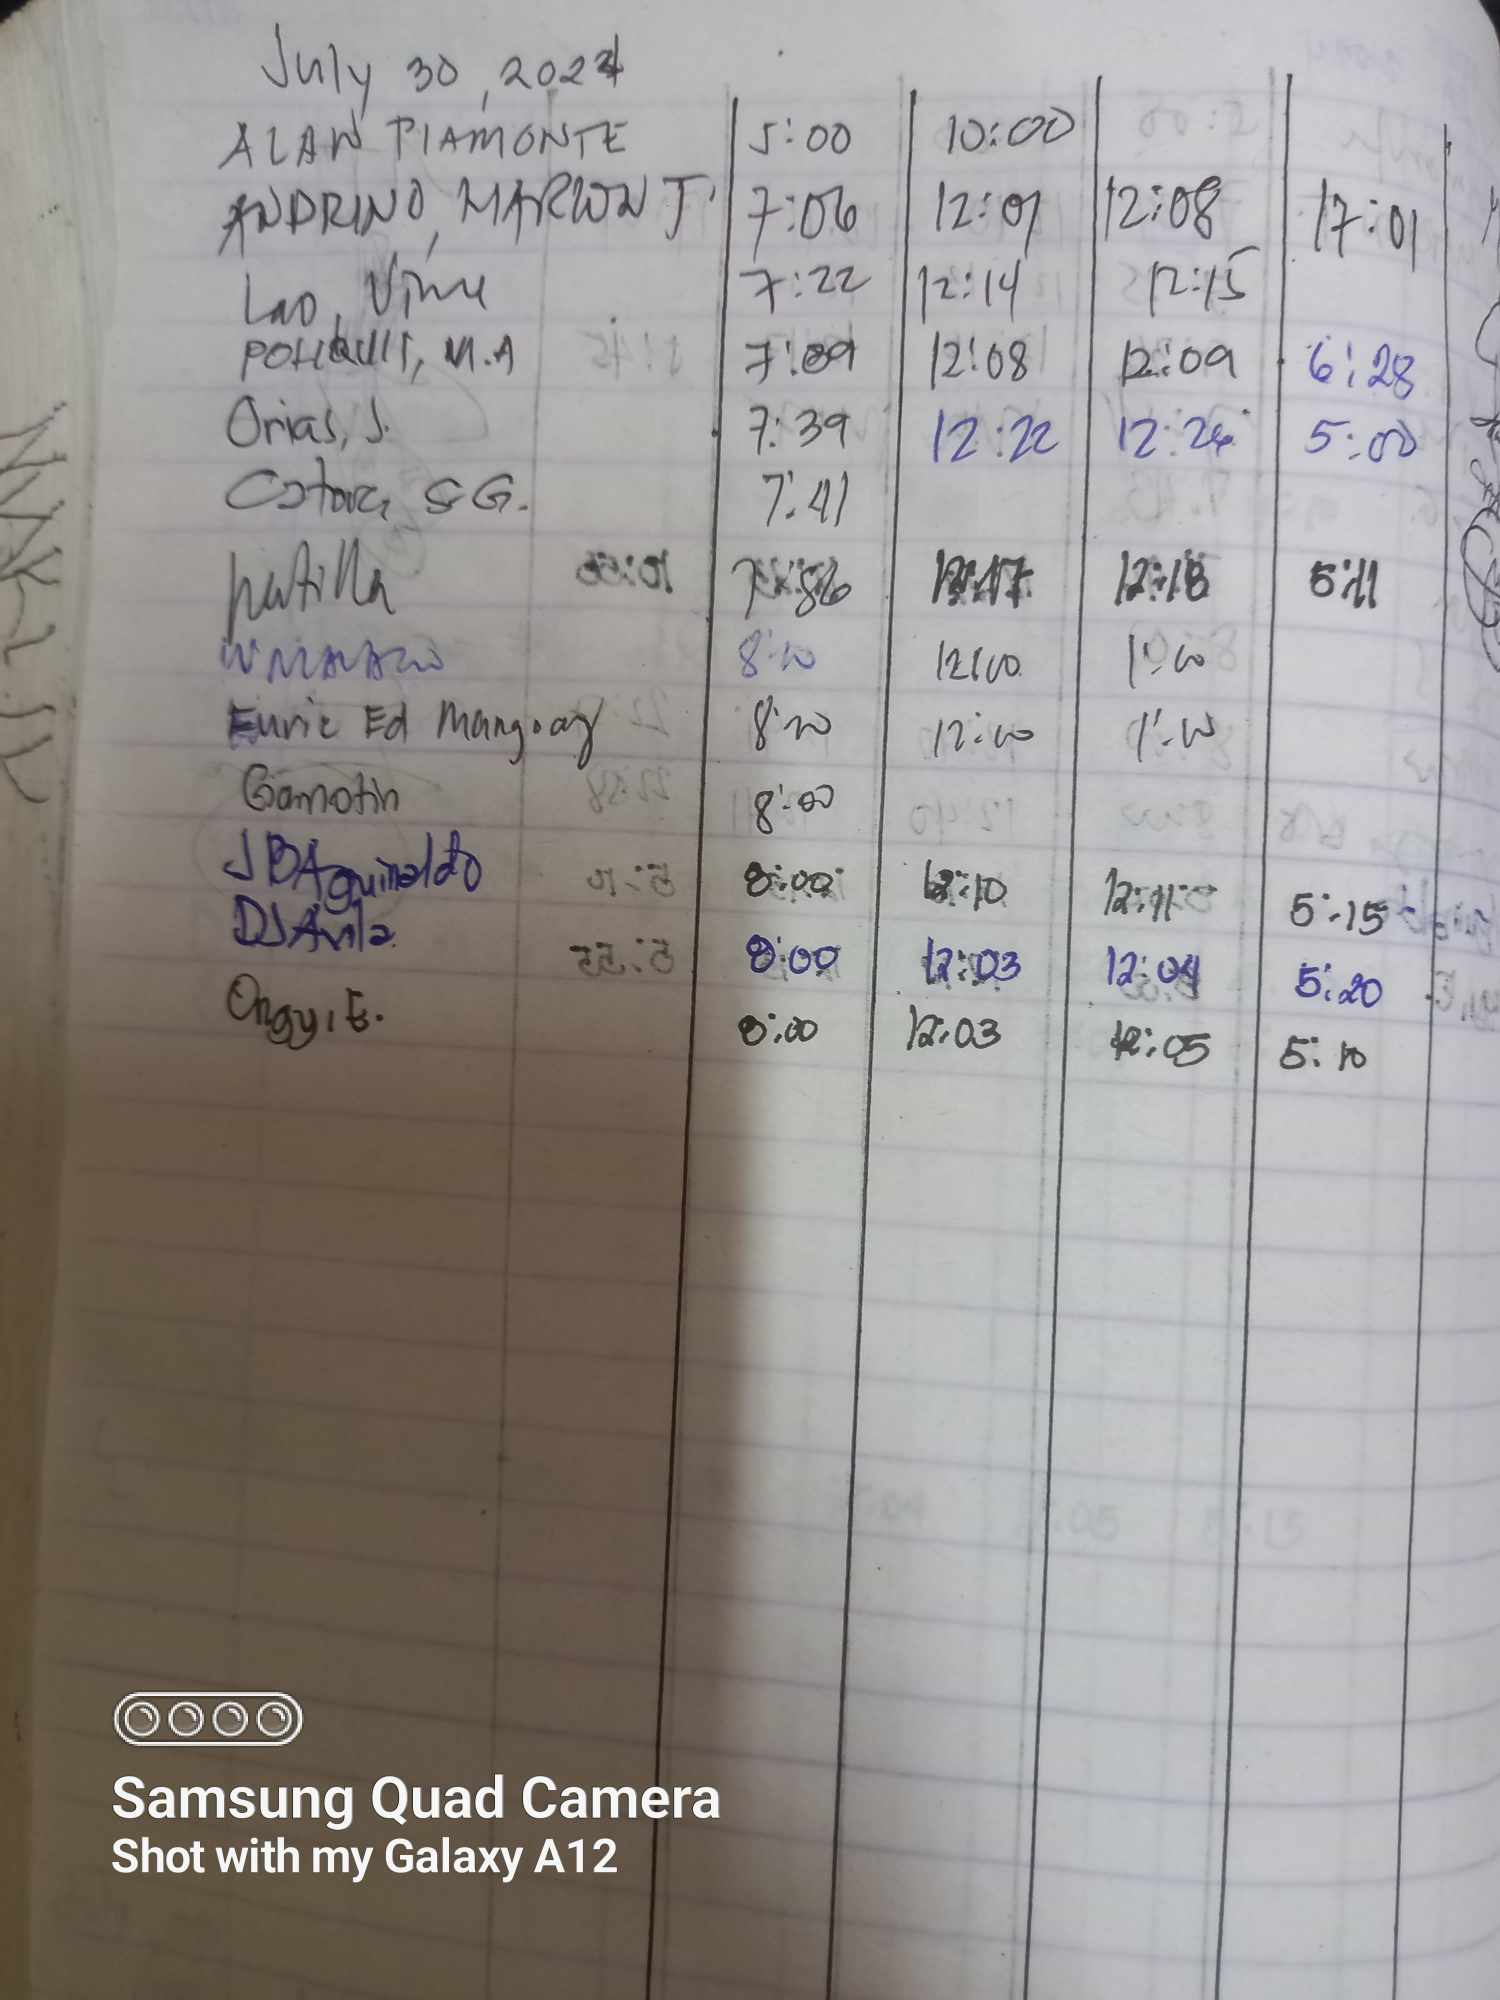 July 30, 2024
ALAN PIAMONTE 5:00 10:00
ANDRINO, MARLON J. 7:06 12:07 12:08 17:01
Lao, Vime 7:22 12:14 12:15
M.A 7:09 12:08 12:09 6:28
Orias, J. 7:39 12:22 12:24 5:00
S G. 7:41
patilla 7:56 12:17 12:18 5:11
8:00 12:00 1:00
Euric Ed Mangoay 8:00 12:00 1:00
Gamotin 8:00
JBAguinaldo 8:00 12:10 12:11 5:15
DJAvila 8:00 12:03 12:04 5:20
Ongy, E. 8:00 12:03 12:05 5:10
Samsung Quad Camera
Shot with my Galaxy A12